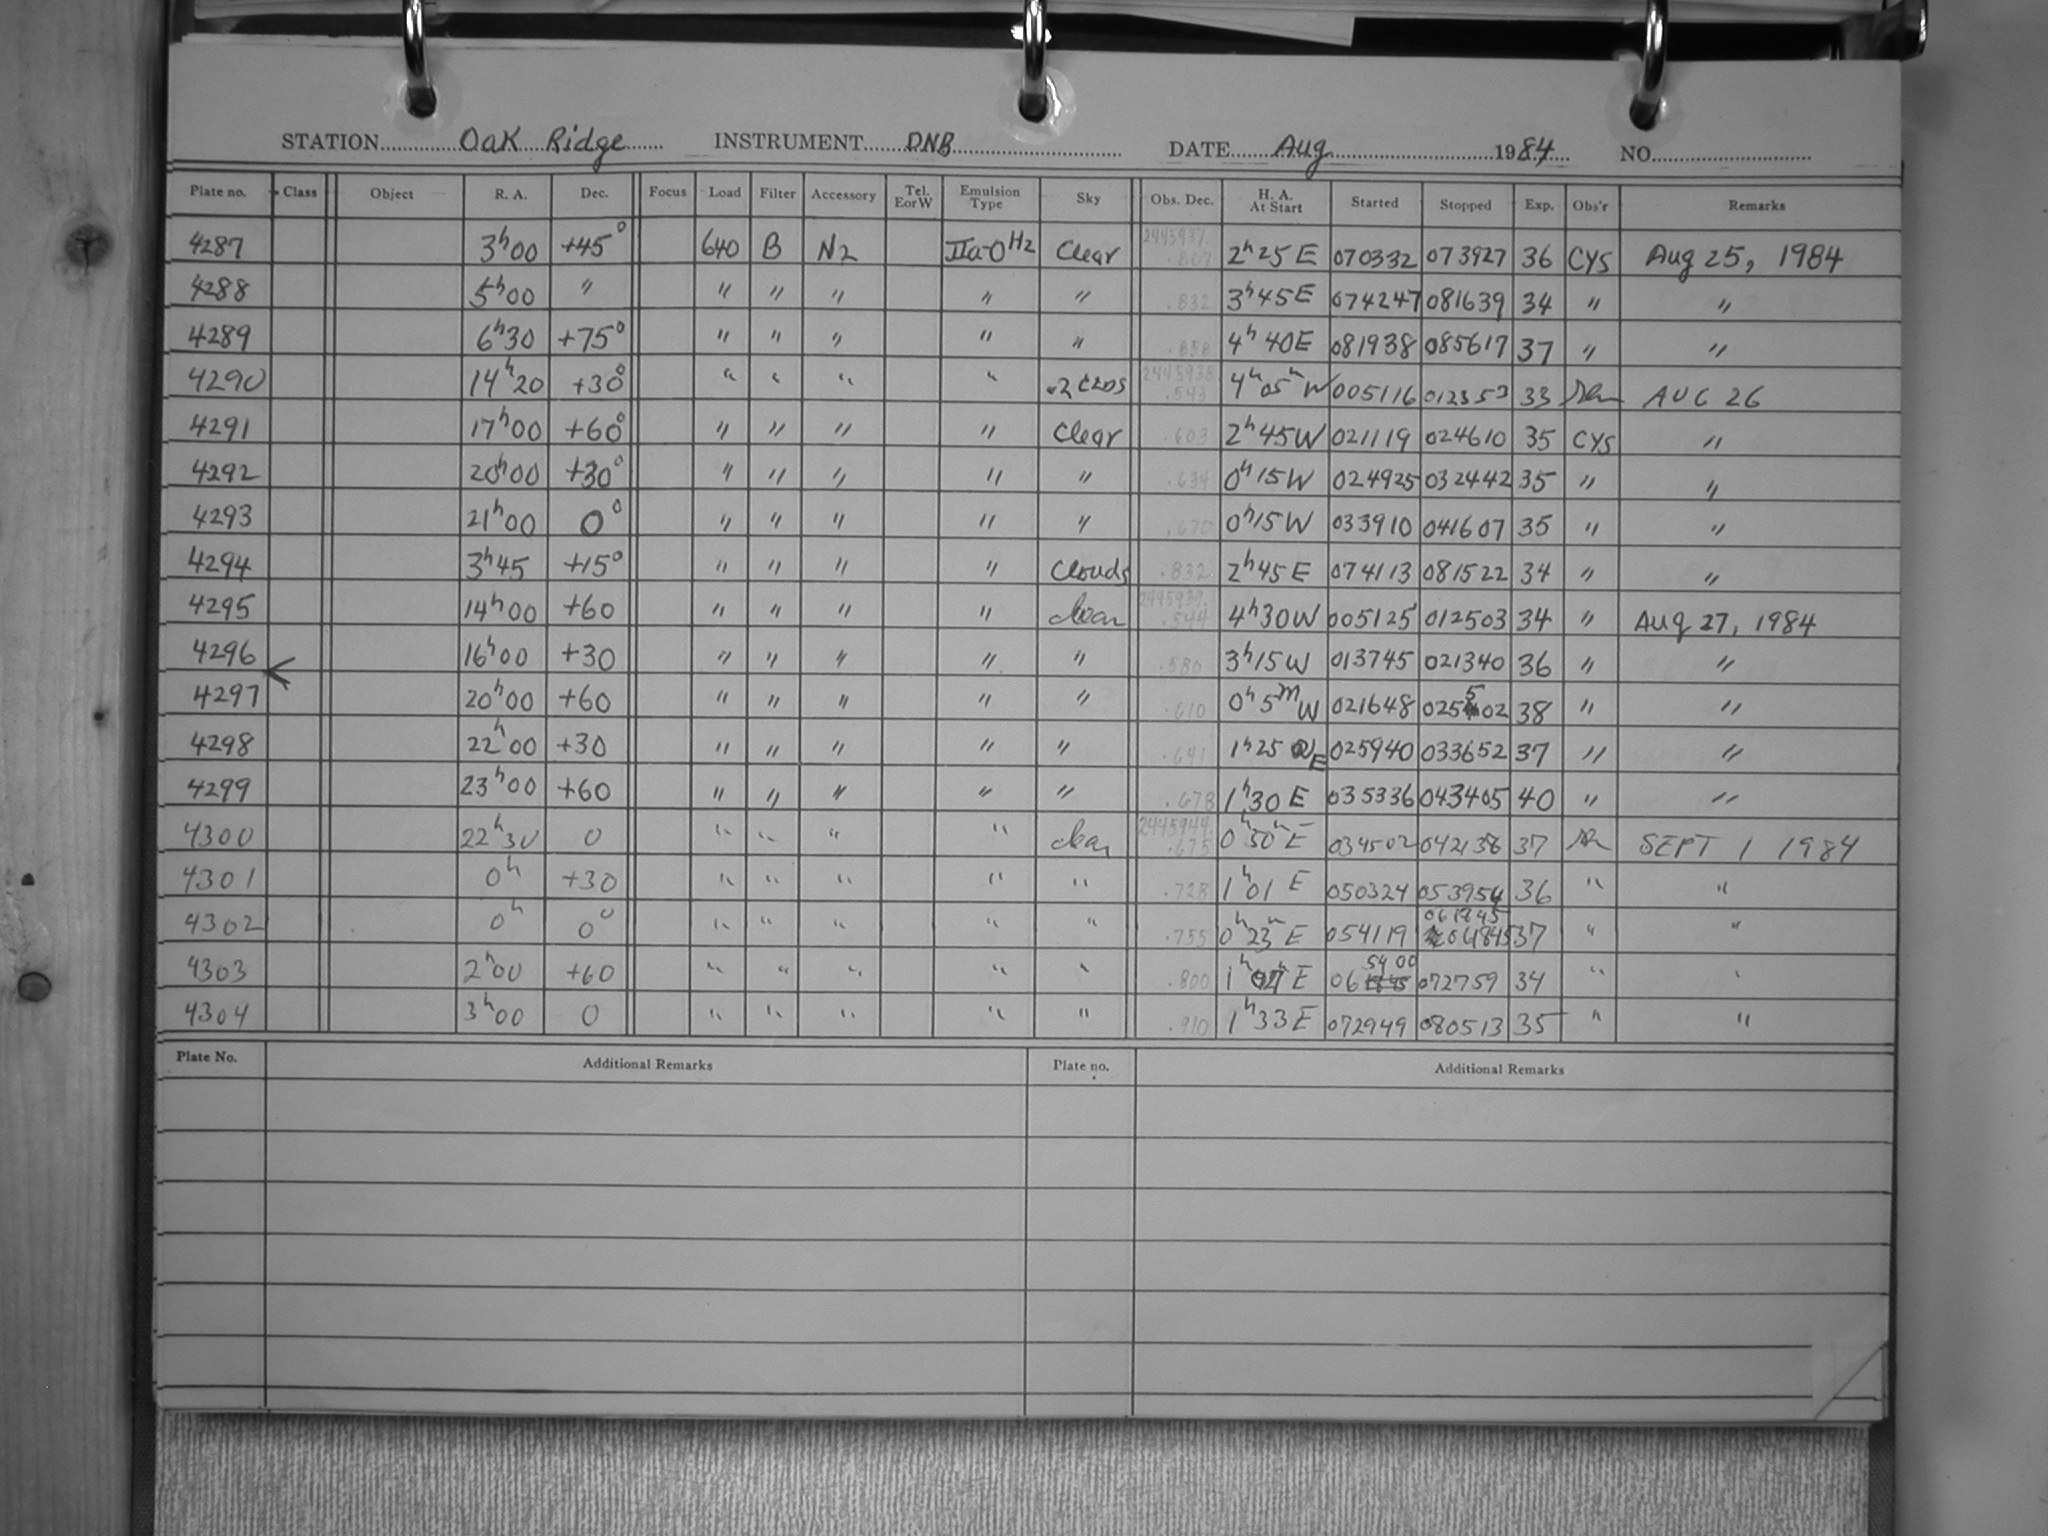 STATION Oak Ridge INSTRUMENT DNB DATE Aug 1984 NO.
Plate no. Class Object R. A. Dec. Focus Load Filter Accessory Tel. EorW Emulsion Type Sky Obs. Dec. H. A. At Start Started Stopped Exp. Obs'r Remarks
4287 3h00 +45° 640 B N2 IIa-O H2 Clear 2445937. .807 2h25 E 070332 073927 36 CYS Aug 25, 1984
4288 5h00 " " " " " " .832 3h45E 074247 081639 34 " "
4289 6h30 +75° " " " " " .858 4h40E 081938 085617 37 " "
4290 14h20 +30° " " " " .2 CLDS 2445938 .543 4h05m W 005116 012353 33 AUG 26
4291 17h00 +60° " " " " Clear .603 2h45W 021119 024610 35 CYS "
4292 20h00 +30° " " " " " .634 0h15W 024925 032442 35 " "
4293 21h00 0° " " " " " .670 0h15W 033910 041607 35 " "
4294 3h45 +15° " " " " Clouds .832 2h45E 074113 081522 34 " "
4295 14h00 +60 " " " " clear 2445939. .544 4h30W 005125 012503 34 " Aug 27, 1984
4296 16h00 +30 " " " " " .580 3h15W 013745 021340 36 " "
4297 20h00 +60 " " " " " .610 0h5mW 021648 025502 38 " "
4298 22h00 +30 " " " " " .641 1h25 E 025940 033652 37 " "
4299 23h00 +60 " " " " " .678 1h30 E 035336 043405 40 " "
4300 22h30 0 " " " " clear 2445944. .675 0h50m E 034502 042138 37 SEPT 1 1984
4301 0h +30 " " " " " .728 1h01 E 050324 053954 36 " "
4302 0h 0° " " " " " .755 0h23m E 054119 061845 37 " "
4303 2h00 +60 " " " " " .800 1h E 065400 072759 34 " "
4304 3h00 0 " " " " " .910 1h33E 072949 080513 35 " "
Plate No. Additional Remarks Plate no. Additional Remarks